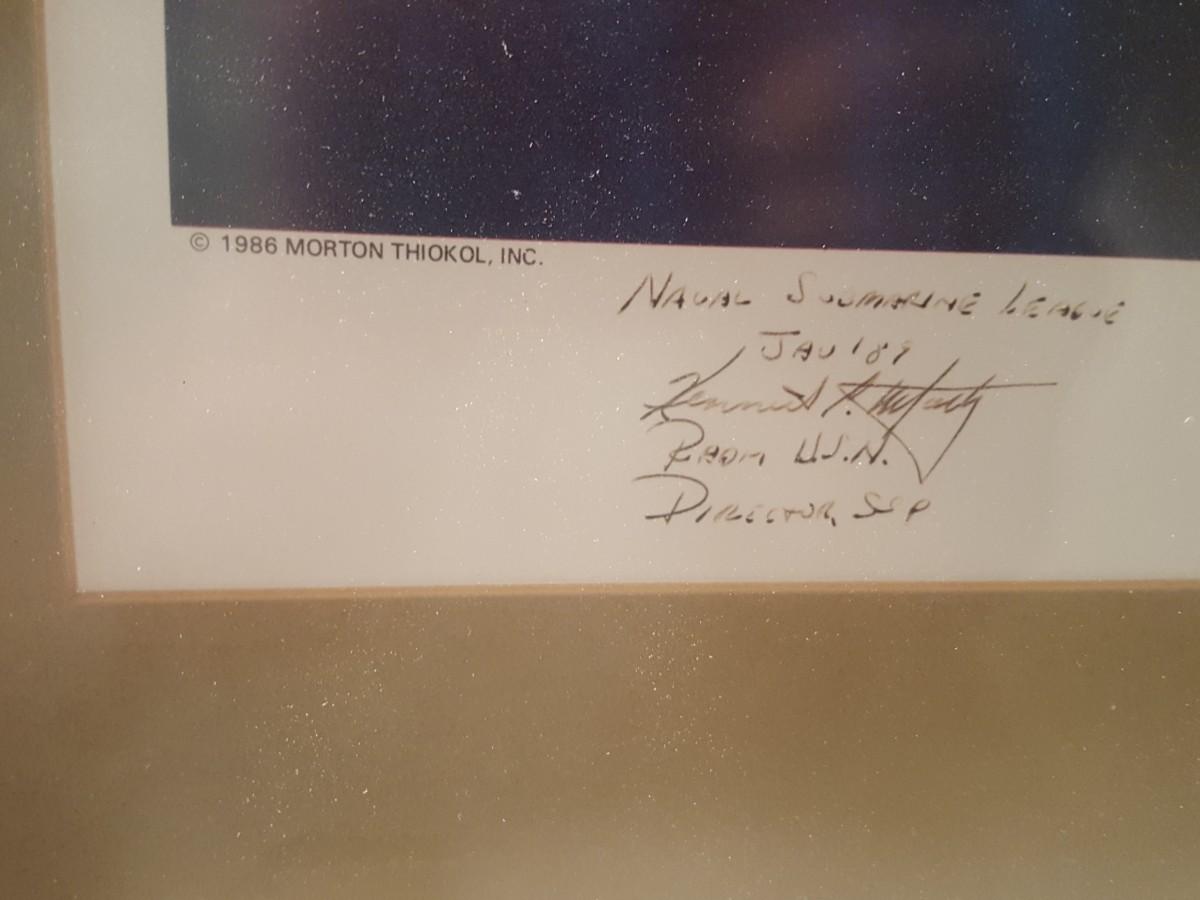 © 1986 MORTON THIOKOL, INC.
NAVAL SUBMARINE LEAGUE
JAN '89
Kenneth
RADM U.S.N.
DIRECTOR, SSP